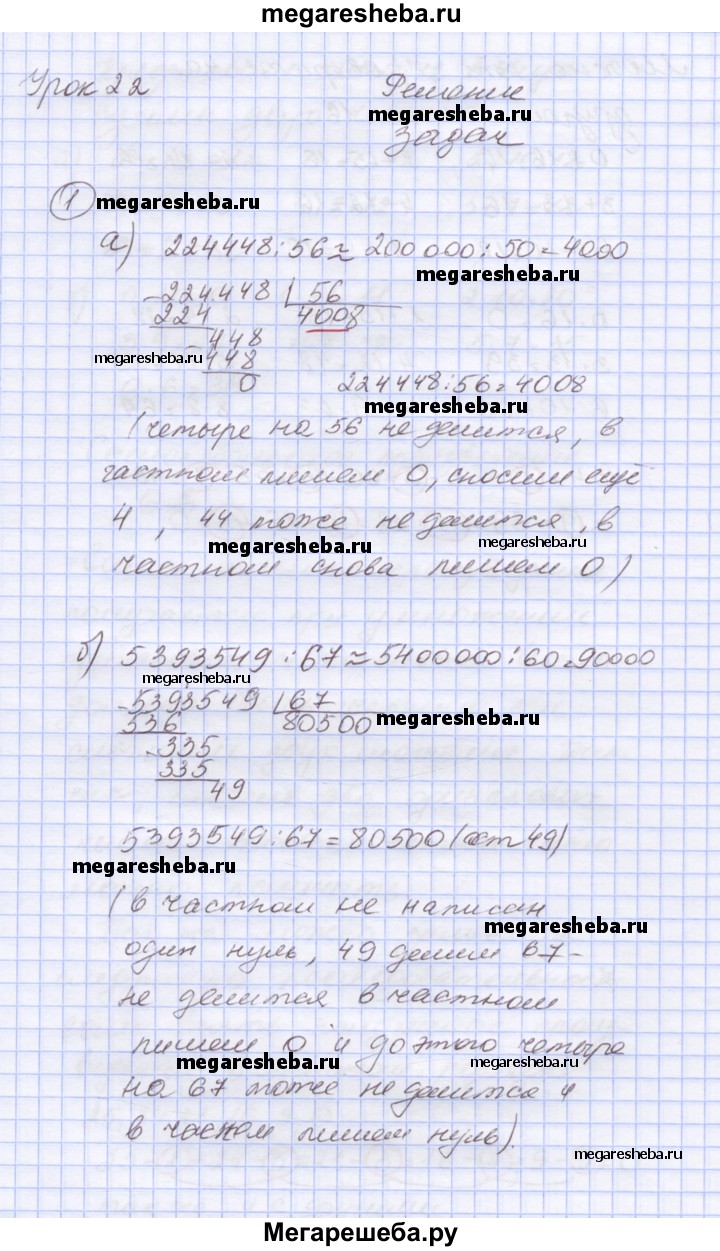 megaresheba.ru
Урок 22 Решение
megaresheba.ru
задач
1 megaresheba.ru
а) 224448:56≈200 000:50=4000
megaresheba.ru
-224448 | 56
224 4008
-448
megaresheba.ru 448
0 224448:56=4008
megaresheba.ru
(четыре на 56 не делится, в
частном пишем 0, сносим ещё
4, 44 тоже не делится, в
megaresheba.ru megaresheba.ru
частном снова пишем 0)
б) 5393549:67≈5400000:60=90000
megaresheba.ru
-5393549 | 67
536 80500 megaresheba.ru
-335
335
49
5393549:67=80500(ост 49)
megaresheba.ru
(в частном не написан
megaresheba.ru
один нуль, 49 делим 67-
не делится в частном
пишем 0 и до этого четыре
megaresheba.ru megaresheba.ru
на 67 тоже не делится и
в часном пишем нуль).
megaresheba.ru
Мегарешеба.ру